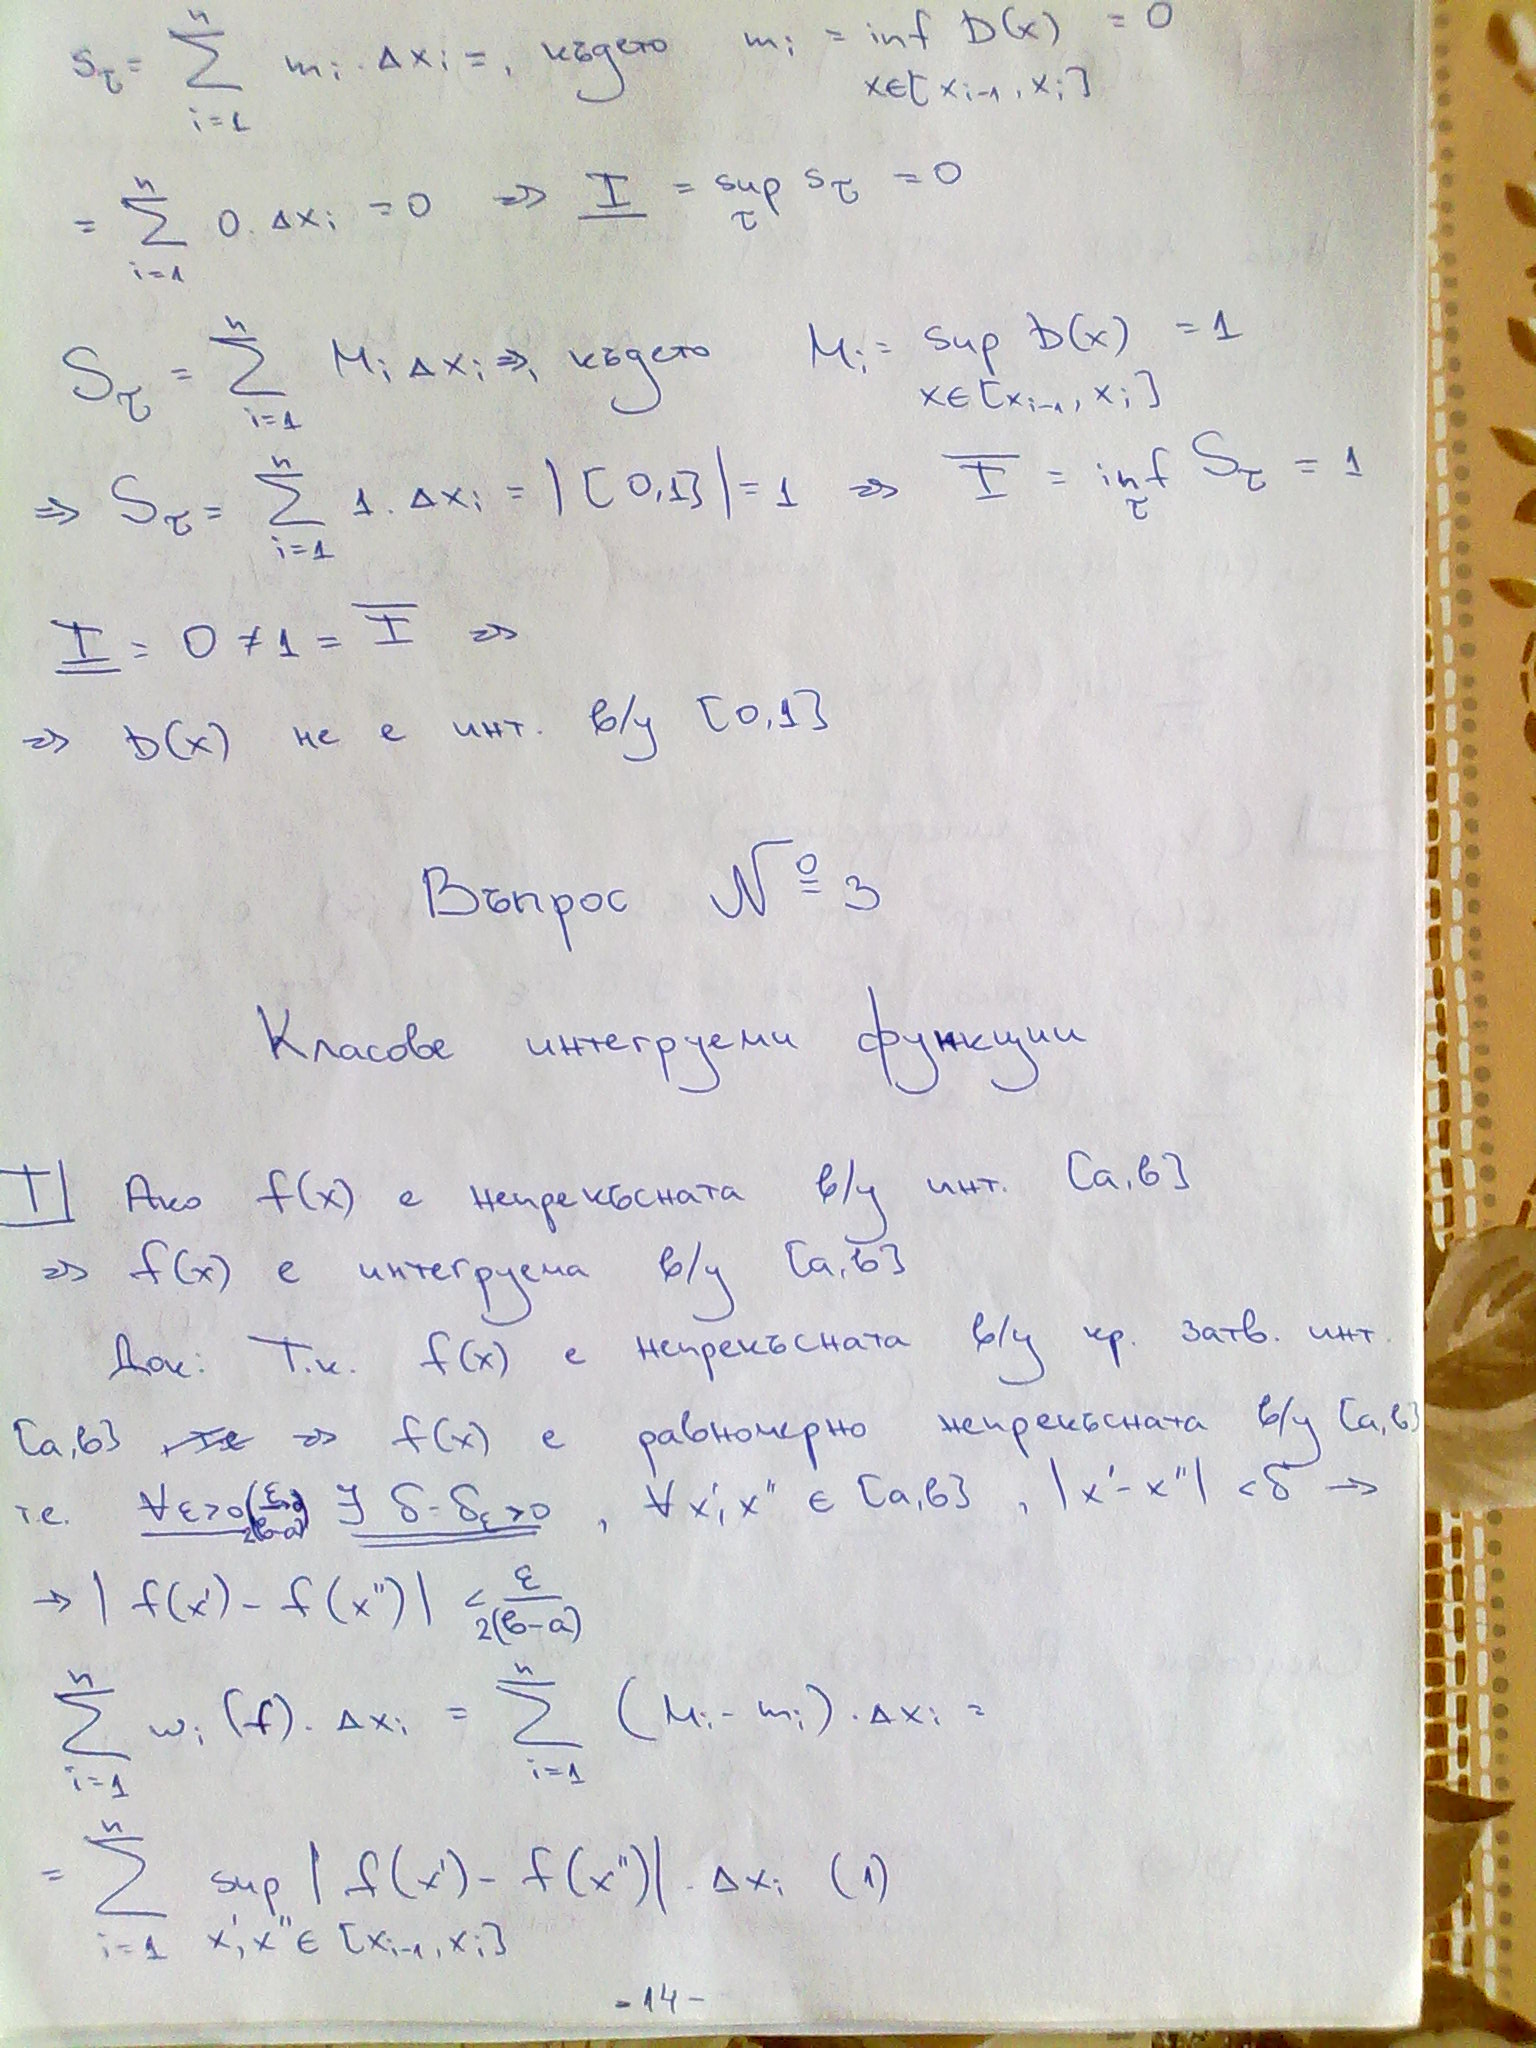 s_τ = Σ_{i=1}^{n} m_i . Δx_i = , където m_i = inf_{x∈[x_{i-1}, x_i]} D(x) = 0
= Σ_{i=1}^{n} 0 . Δx_i = 0 ⇒ I̲ = sup_τ s_τ = 0
S_τ = Σ_{i=1}^{n} M_i Δx_i ⇒, където M_i = sup_{x∈[x_{i-1}, x_i]} D(x) = 1
⇒ S_τ = Σ_{i=1}^{n} 1 . Δx_i = |[0,1]| = 1 ⇒ I̅ = inf_τ S_τ = 1
I̲ = 0 ≠ 1 = I̅ ⇒
⇒ D(x) не е инт. в/у [0,1]
Въпрос № 3
Класове интегруеми функции
T| Ако f(x) е непрекъсната в/у инт. [a,b]
⇒ f(x) е интегруема в/у [a,b]
Док: Т.к. f(x) е непрекъсната в/у кр. затв. инт.
[a,b] ⇒ f(x) е равномерно непрекъсната в/у [a,b]
т.е. ∀ε>0 (ε>0/2(b-a)) ∃ δ = δ_ε > 0 , ∀ x', x'' ∈ [a,b] , |x' - x''| < δ →
→ |f(x') - f(x'')| < ε/2(b-a)
Σ_{i=1}^{n} w_i(f) . Δx_i = Σ_{i=1}^{n} (M_i - m_i) . Δx_i =
= Σ_{i=1}^{n} sup_{x', x'' ∈ [x_{i-1}, x_i]} |f(x') - f(x'')| . Δx_i (1)
- 14 -